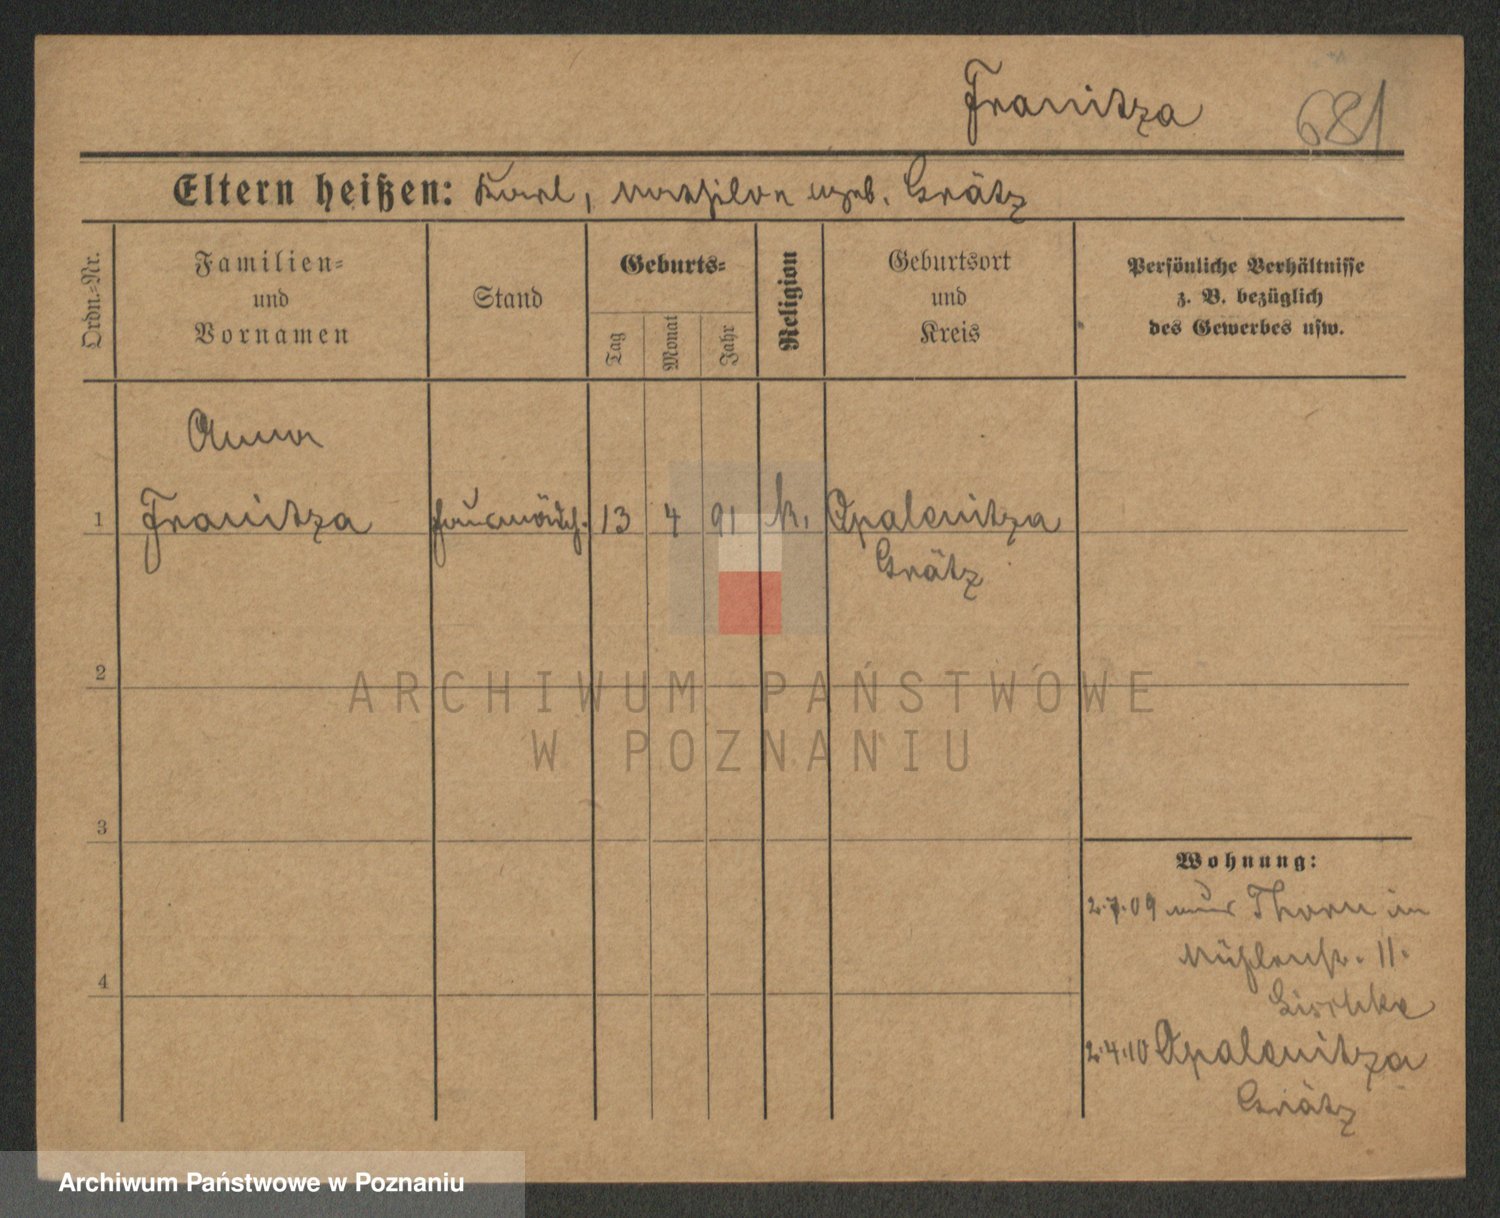 Franitza 681
Eltern heißen: Karl, Mathilde geb. Grätz
Ordn.-Nr.
Familien-
und
Vornamen
Stand
Geburts-
Tag
Monat
Jahr
Religion
Geburtsort
und
Kreis
Persönliche Verhältnisse
z. B. bezüglich
des Gewerbes usw.
Anna
1 Franitza Hausmädch. 13 4 91 k. Opalenitza
Grätz
2
ARCHIWUM PAŃSTWOWE
W POZNANIU
3
Wohnung:
2.7.09 aus Thorn in
Mühlenstr. 11.
4
2.4.10 Opalenitza
Grätz
Archiwum Państwowe w Poznaniu